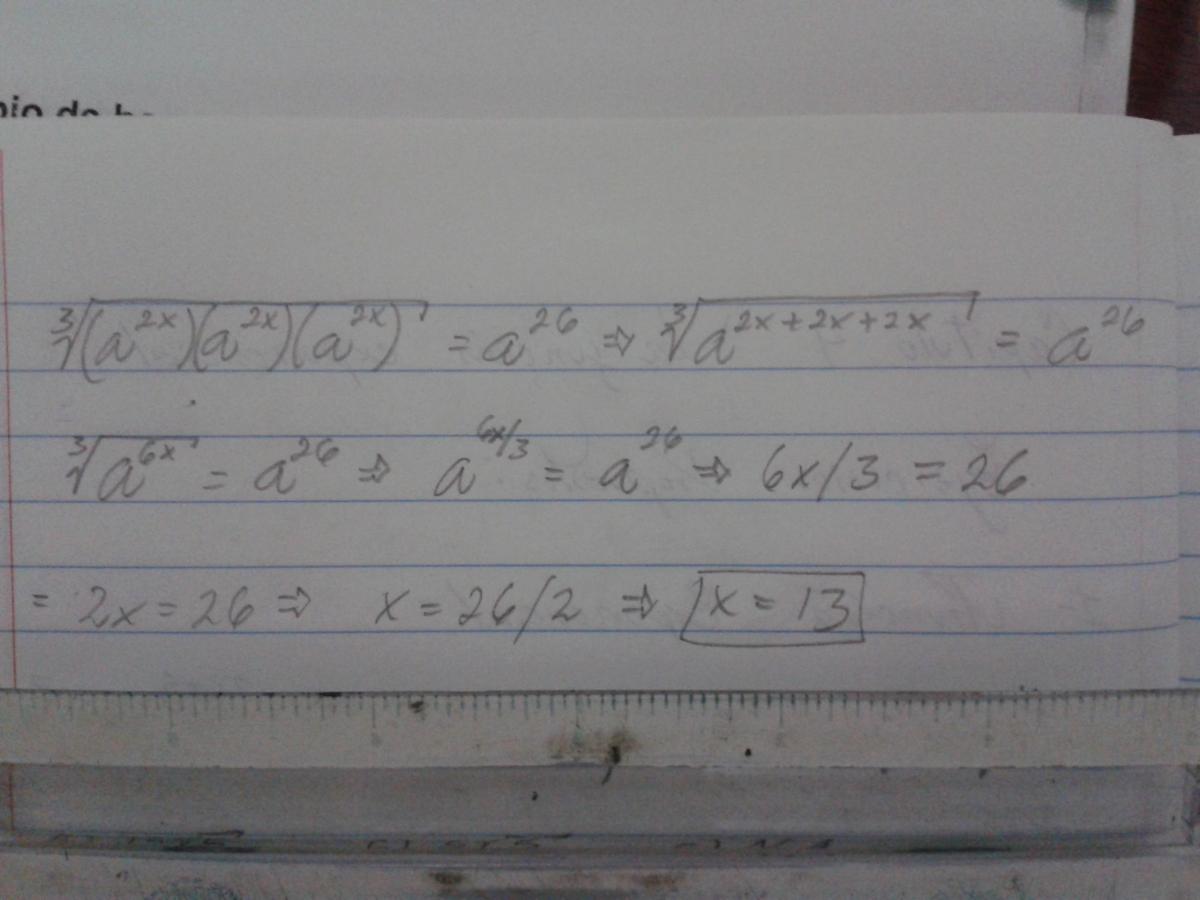 ∛(a^2x)(a^2x)(a^2x) = a^26 ⇒ ∛a^2x+2x+2x = a^26
∛a^6x = a^26 ⇒ a^6x/3 = a^26 ⇒ 6x/3 = 26
= 2x = 26 ⇒ x = 26/2 ⇒ x = 13